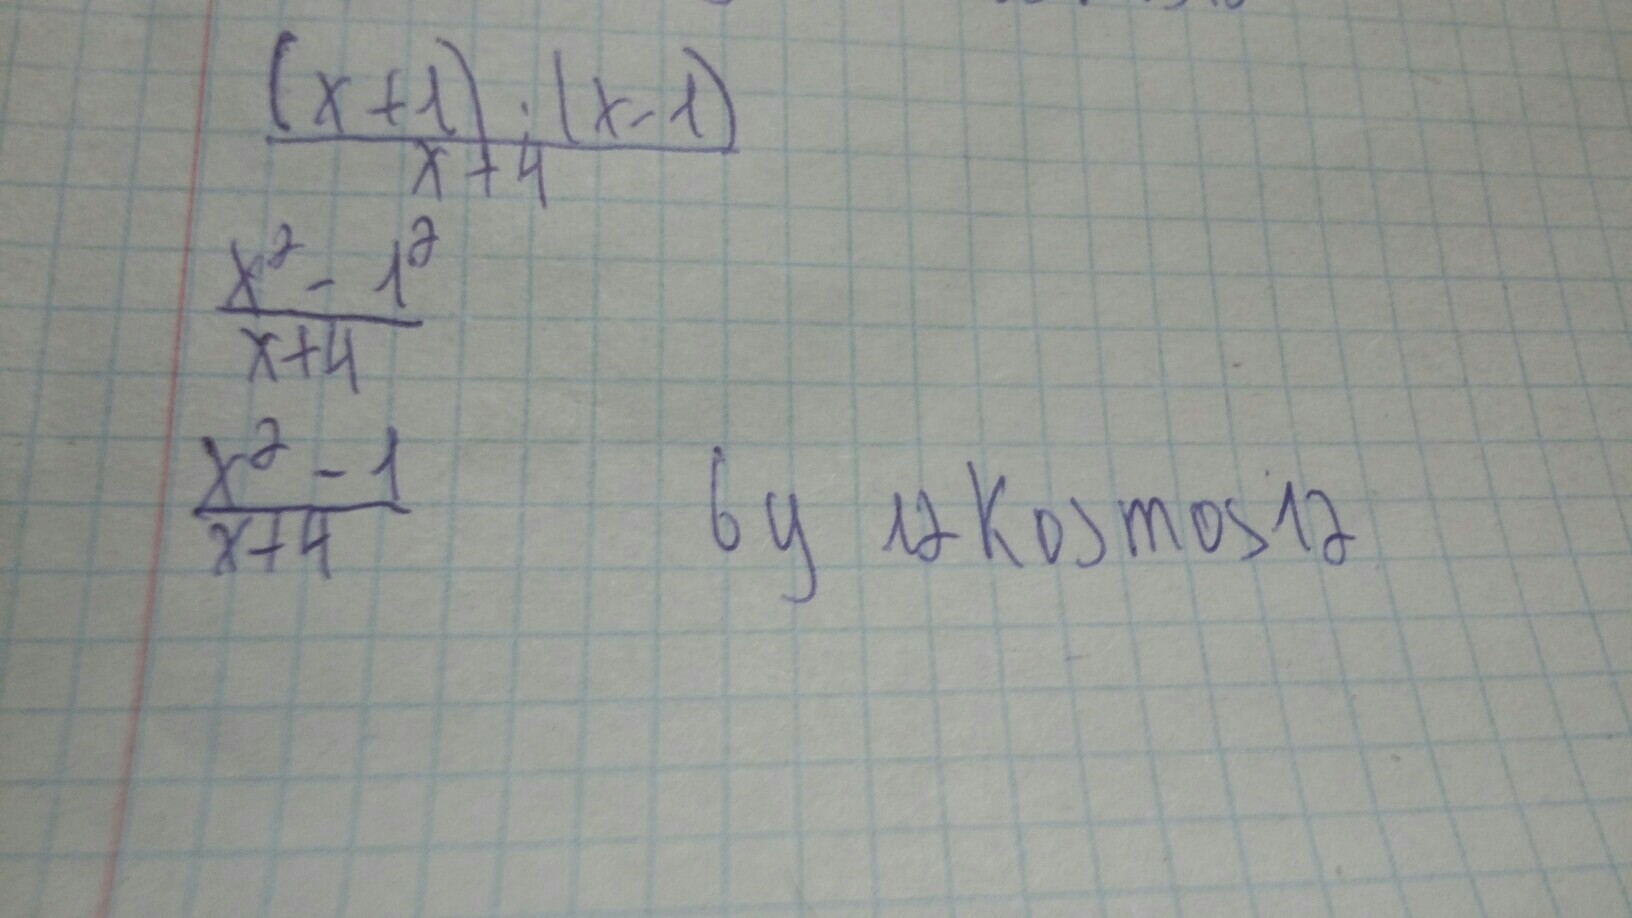 (x+1)·(x-1)
x+4
x² - 1²
x+4
x² - 1
x+4
by 12Kosmos12